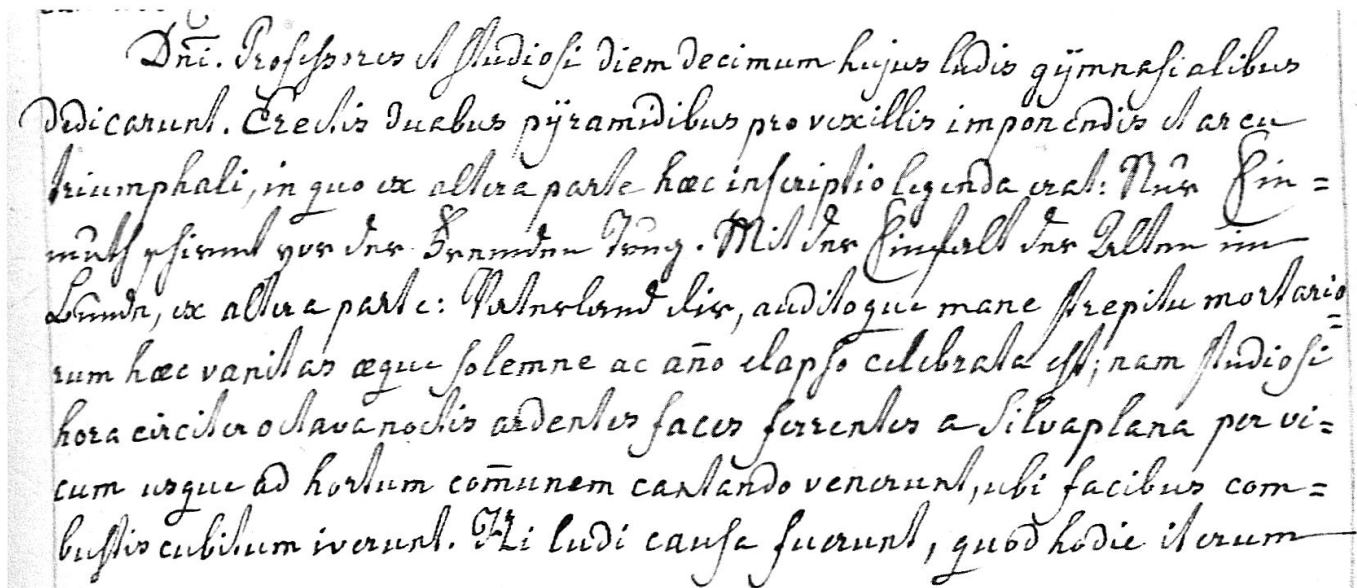 Dñi. Professores et studiosi diem decimum hujus ludis gÿmnasialibus
dedicarunt. Erectis duabus pÿramidibus pro vexillis imponendis et arcu
triumphali, in quo ex altera parte hæc inscriptio legenda erat: Nur Ein=
muth schirmt vor der Fremden Trug. Mit der Einfalt der Alten im
Bunde, ex altera parte: Vaterland dir, auditoque mane strepitu mortario=
rum hæc vanitas æque solemne ac año elapso celebrata est; nam studiosi
hora circiter octava noctis ardentes faces ferrentes a Silvaplana per vi=
cum usque ad hortum com̄unem cantando venerunt, ubi facibus com=
bustis cubitum iverunt. Hi ludi causa fuerunt, quod hodie iterum